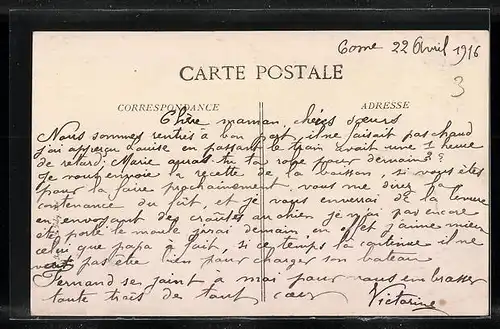 Come 22 Avril 1916
CARTE POSTALE
3
CORRESPONDANCE
ADRESSE
Chère maman, chères sœurs
Nous sommes rentrés à bon port, il ne faisait pas chaud
j'ai apperçu Louise en passant le train avait une 1 heure
de retard; Marie auras tu ta robe pour demain??
Je vous envoie la recette de la boisson, si vous êtes
pour la faire prochainement. vous me direz la
contenance du fût, et je vous enverrai de la levure
en envoyant des croûtes au chien je n'ai pas encore
été porté le moule j'irai demain, en effet j'aime mieux
celui que papa à fait, si ce temps là continue il ne
pas être bien pour charger son bateau
Fernand se joint à moi pour vous embrasser
toute très de tout cœur
Victorine